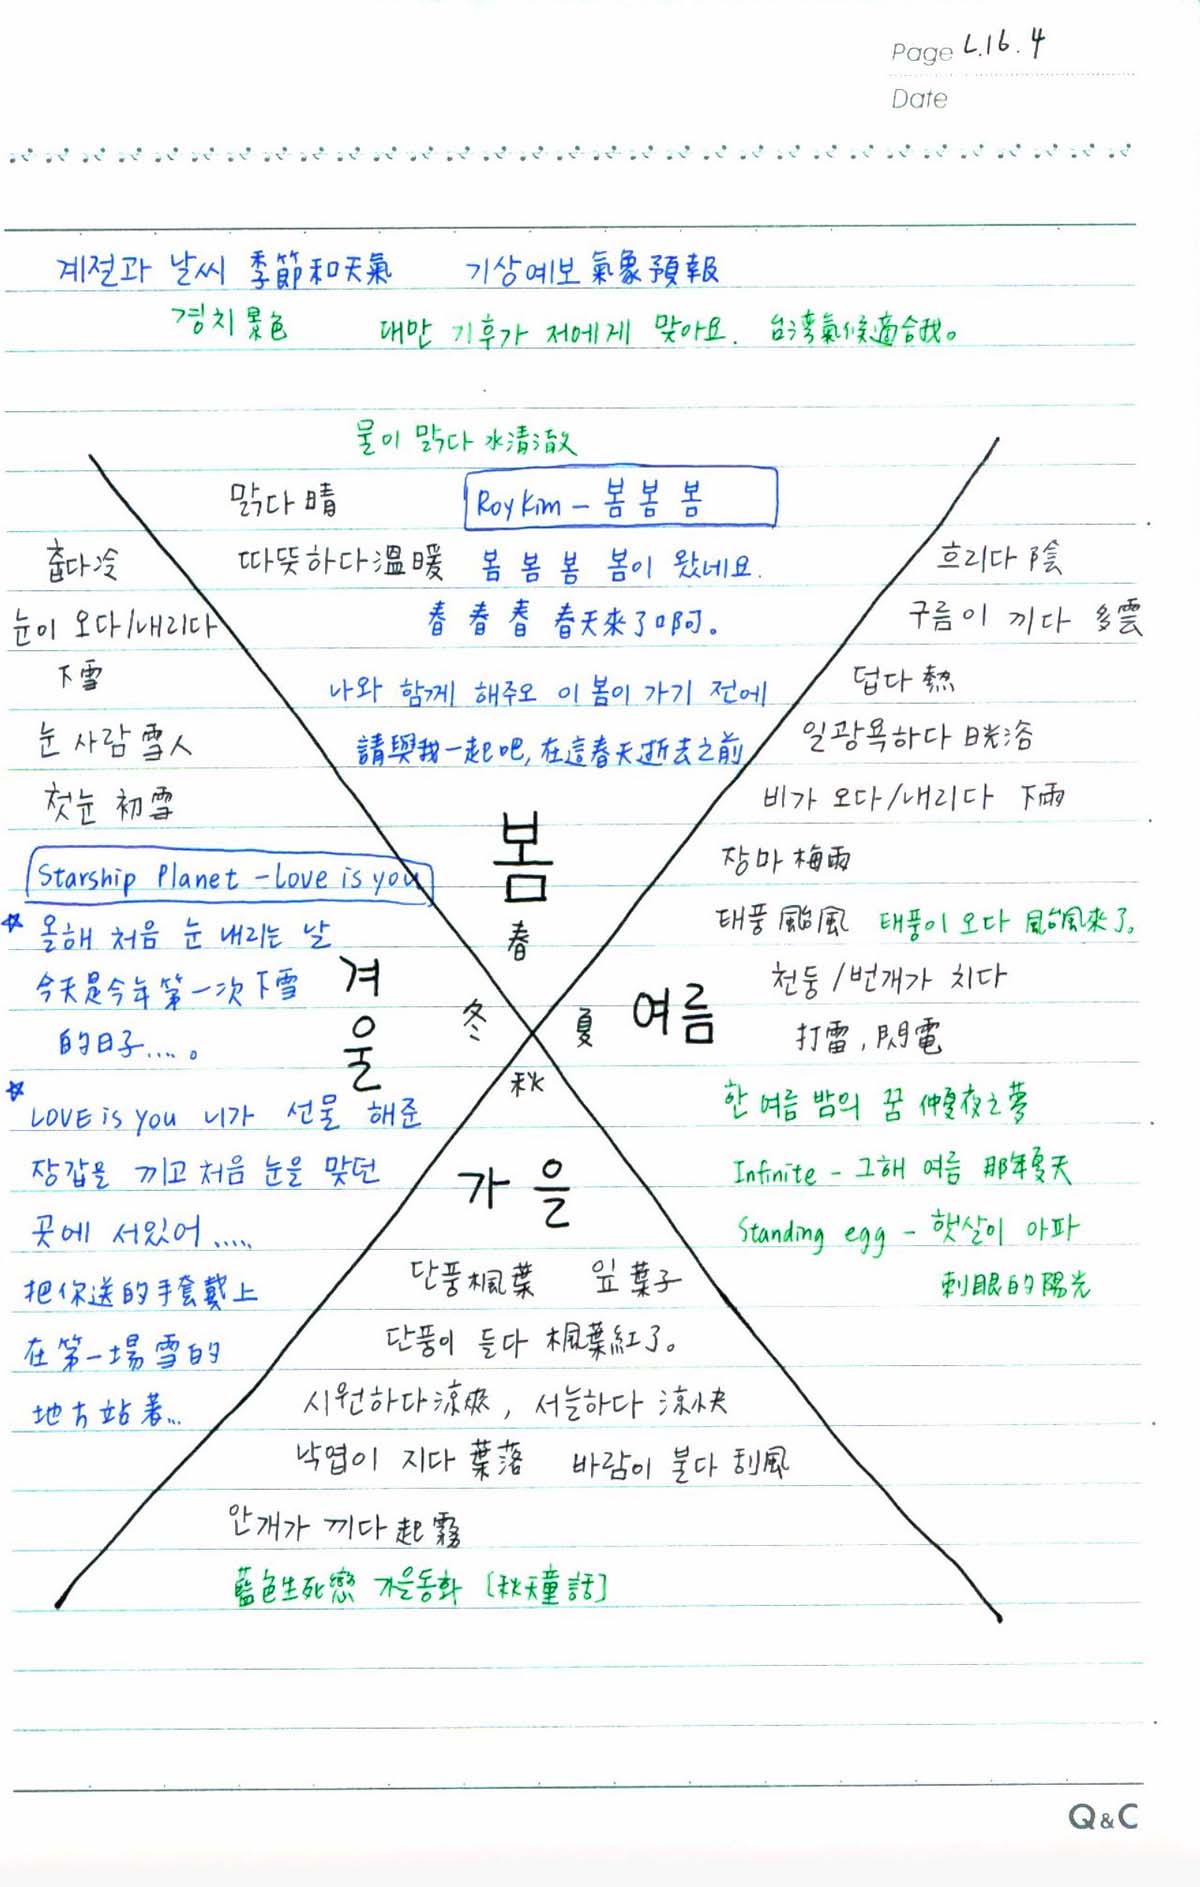 Page L.16.4
Date
계절과 날씨 季節和天氣 기상예보 氣象預報
경치 景色 대만 기후가 저에게 맞아요. 台湾氣候適合我。
물이 맑다 水清澈
맑다 晴
Roy Kim - 봄 봄 봄
따뜻하다 溫暖
봄 봄 봄 봄이 왔네요.
春 春 春 春天來了啊。
나와 함께 해주오 이 봄이 가기 전에
請與我一起吧, 在這春天逝去之前
봄
春
춥다 冷
눈이 오다/내리다
下雪
눈 사람 雪人
첫눈 初雪
Starship Planet - Love is you
☆ 올해 처음 눈 내리는 날
今天是今年第一次下雪
的日子....。
☆
LOVE is you 니가 선물 해준
장갑을 끼고 처음 눈을 맞던
곳에 서있어.....
把你送的手套戴上
在第一場雪的
地方站著...
겨울
冬
흐리다 陰
구름이 끼다 多雲
덥다 熱
일광욕하다 日光浴
비가 오다/내리다 下雨
장마 梅雨
태풍 颱風 태풍이 오다 颱風來了。
천둥/번개가 치다
打雷, 閃電
夏 여름
한 여름 밤의 꿈 仲夏夜之夢
Infinite - 그해 여름 那年夏天
Standing egg - 햇살이 아파
刺眼的陽光
秋
가을
단풍 楓葉 잎 葉子
단풍이 들다 楓葉紅了。
시원하다 涼爽, 서늘하다 涼快
낙엽이 지다 葉落 바람이 불다 刮風
안개가 끼다 起霧
藍色生死戀 가을동화 [秋天童話]
Q&C